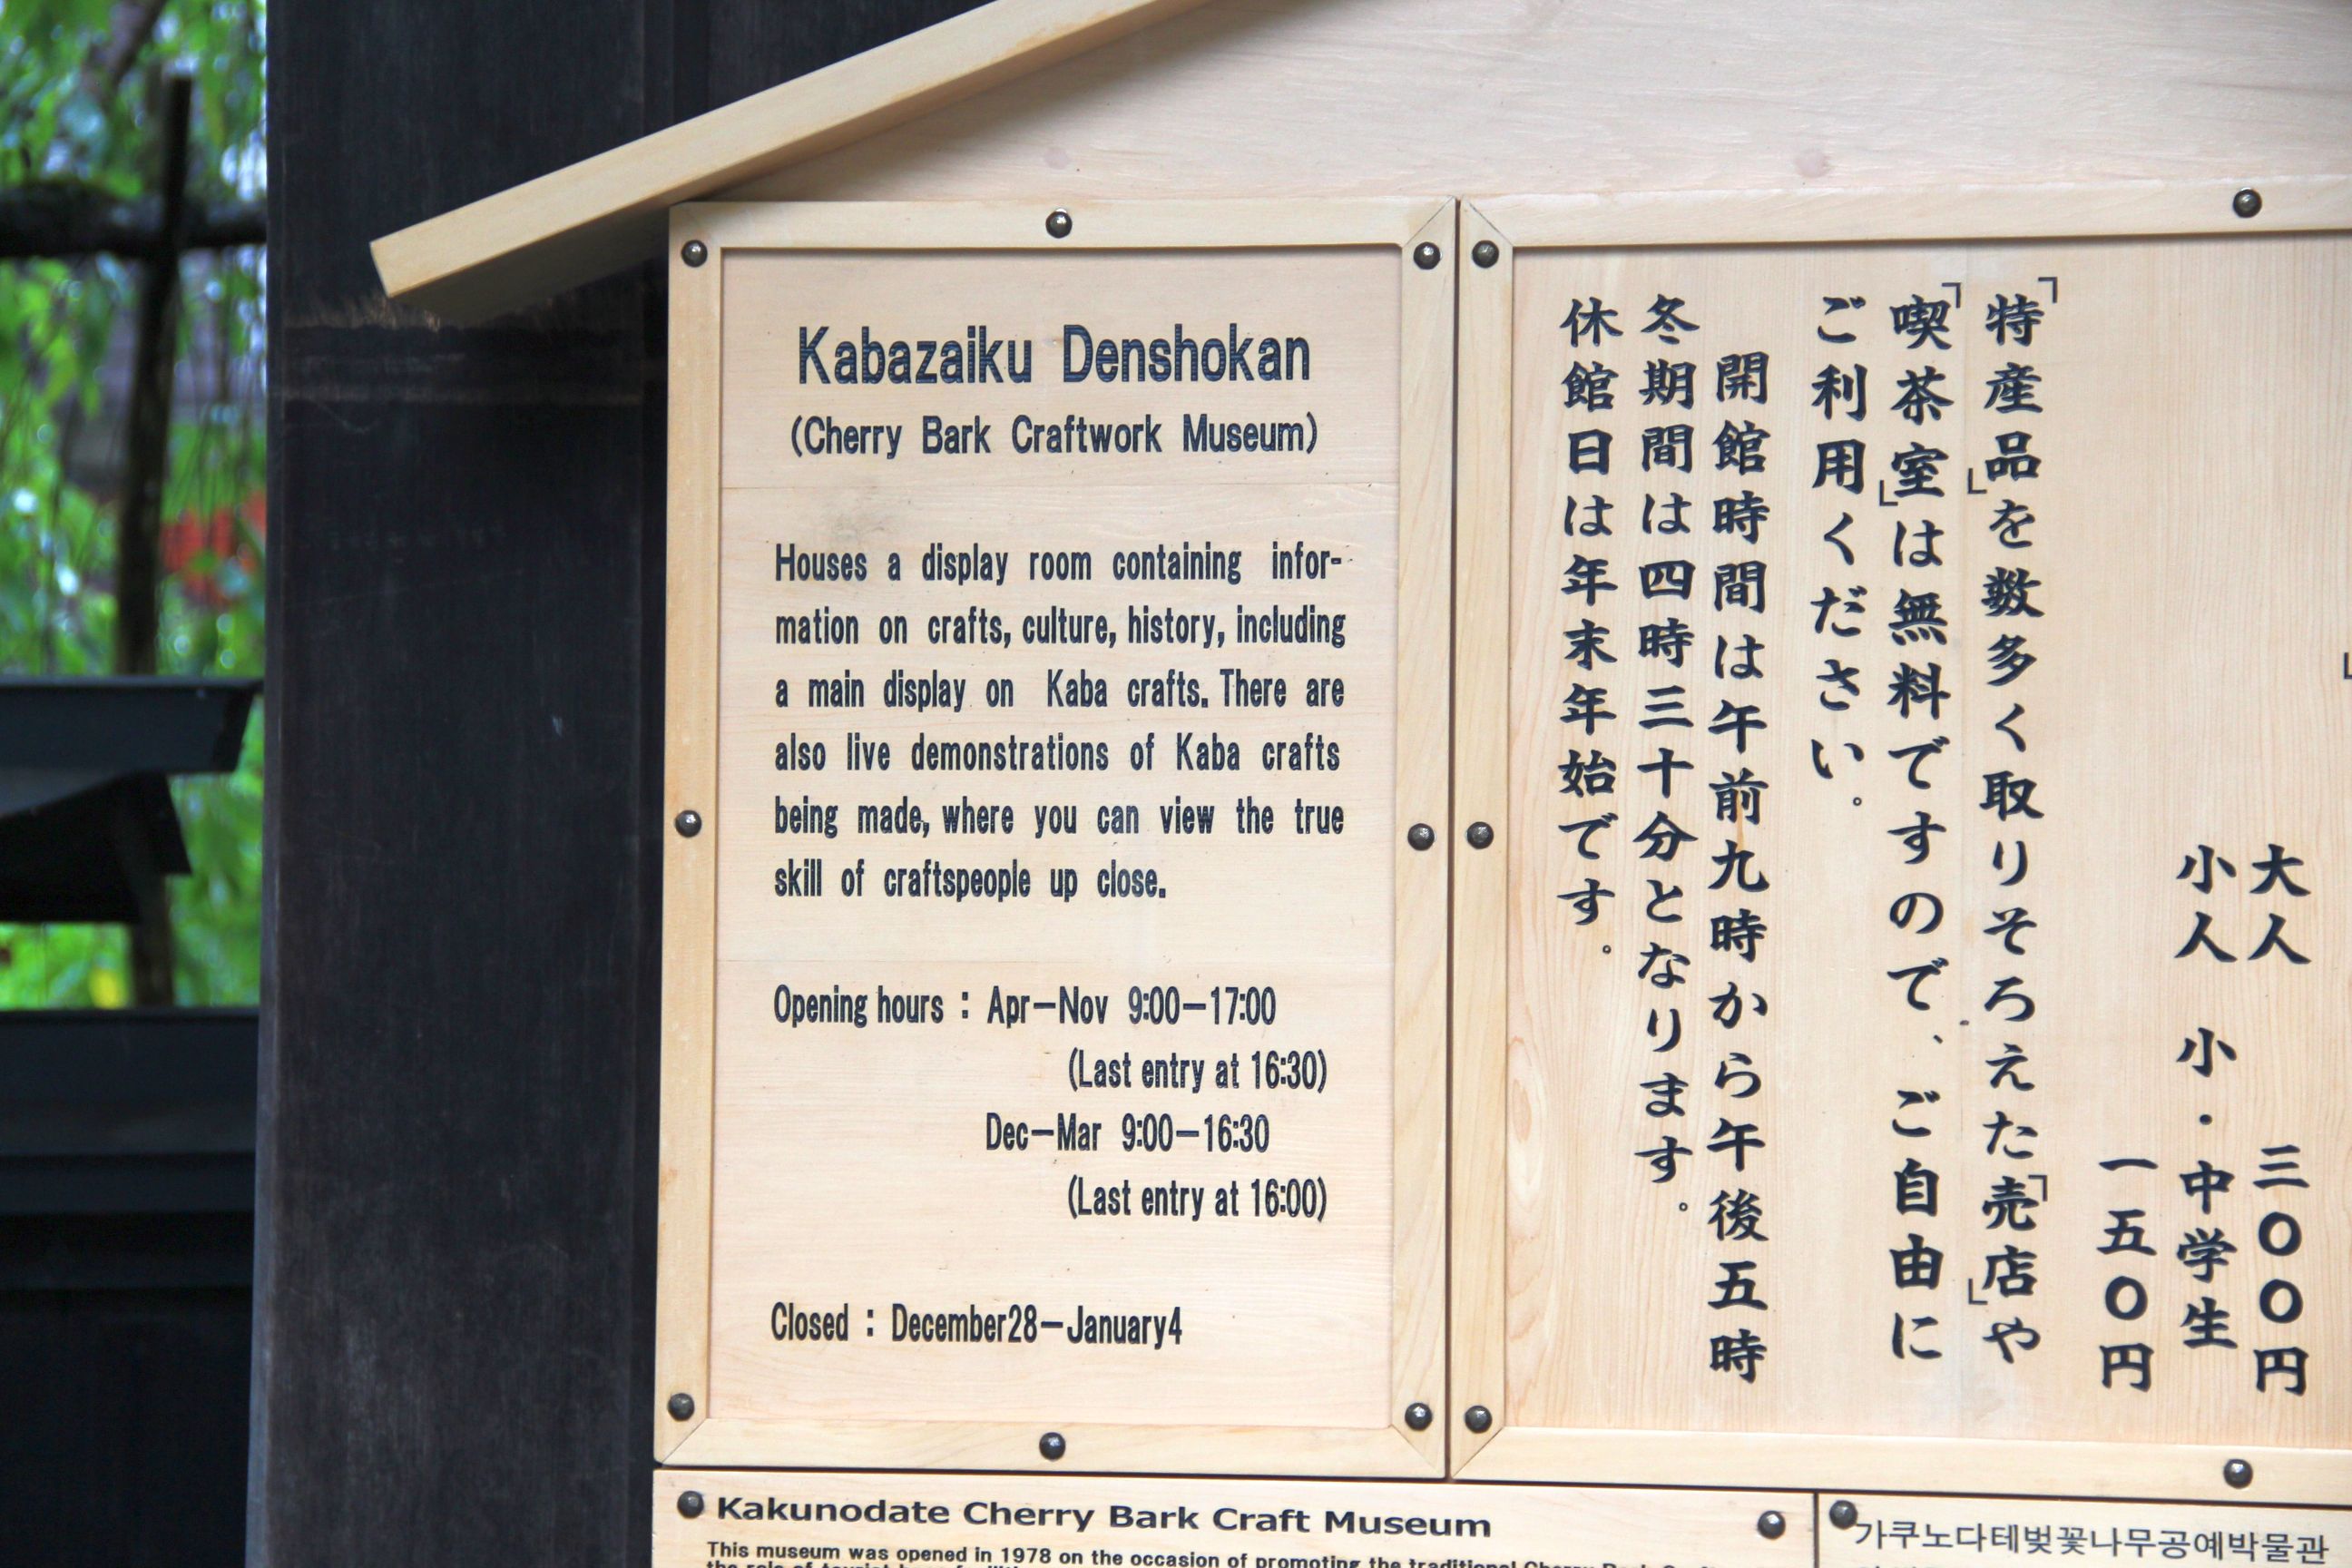 Kabazaiku Denshokan
(Cherry Bark Craftwork Museum)
Houses a display room containing infor-
mation on crafts, culture, history, including
a main display on Kaba crafts. There are
also live demonstrations of Kaba crafts
being made, where you can view the true
skill of craftspeople up close.
Opening hours : Apr－Nov 9:00－17:00
(Last entry at 16:30)
Dec－Mar 9:00－16:30
(Last entry at 16:00)
Closed : December28－January4
大人 三〇〇円
小人 小・中学生
一五〇円
「特産品」を数多く取りそろえた「売店」や
「喫茶室」は無料ですので、ご自由に
ご利用ください。
開館時間は午前九時から午後五時
冬期間は四時三十分となります。
休館日は年末年始です。
Kakunodate Cherry Bark Craft Museum
This museum was opened in 1978 on the occasion of promoting the traditional Cherry Bark
가쿠노다테벚꽃나무공예박물관